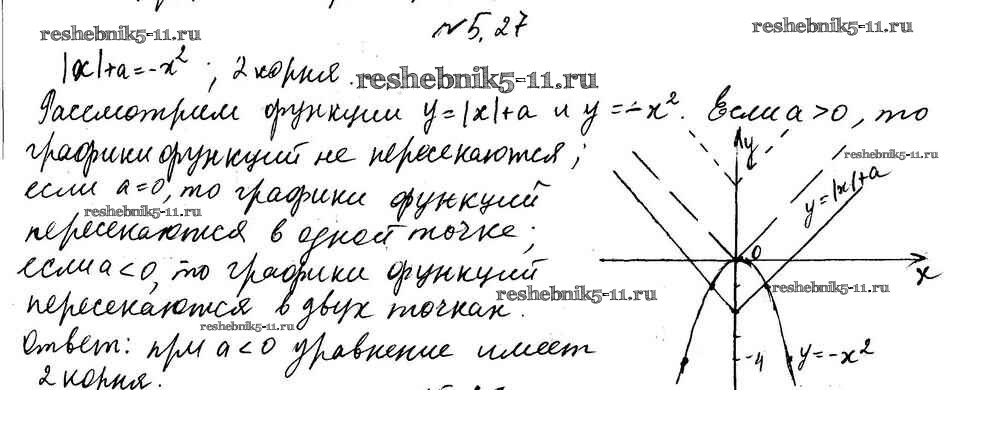 reshebnik5-11.ru
№5,27
reshebnik5-11.ru
|x|+a=-x²; 2 корня.
reshebnik5-11.ru
Рассмотрим функции y=|x|+a и y=-x². Если a>0, то
графики функций не пересекаются;
если a=0, то графики функций
reshebnik5-11.ru
пересекаются в одной точке;
если a<0, то графики функций
пересекаются в двух точках.
reshebnik5-11.ru
reshebnik5-11.ru
Ответ: при a<0 уравнение имеет
2 корня.
y
reshebnik5-11.ru
y=|x|+a
0
x
reshebnik5-11.ru
-4
y=-x²